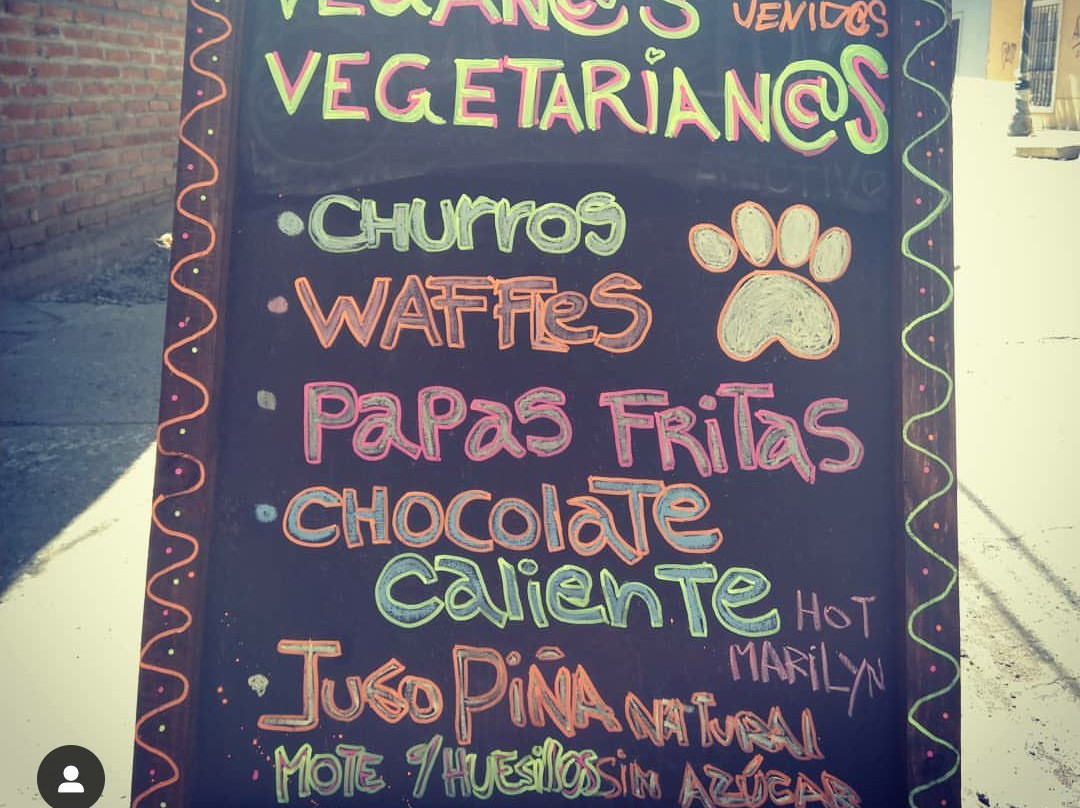 VEGAN@S VENID@S
VEGETARIAN@S
• CHURROS
• WAFFLES
• PAPAS FRITAS
• CHOCOLATE
CALIENTE
HOT
MARILYN
• JUGO PIÑA NATURAL
• MOTE C/HUESILLOS SIN AZÚCAR